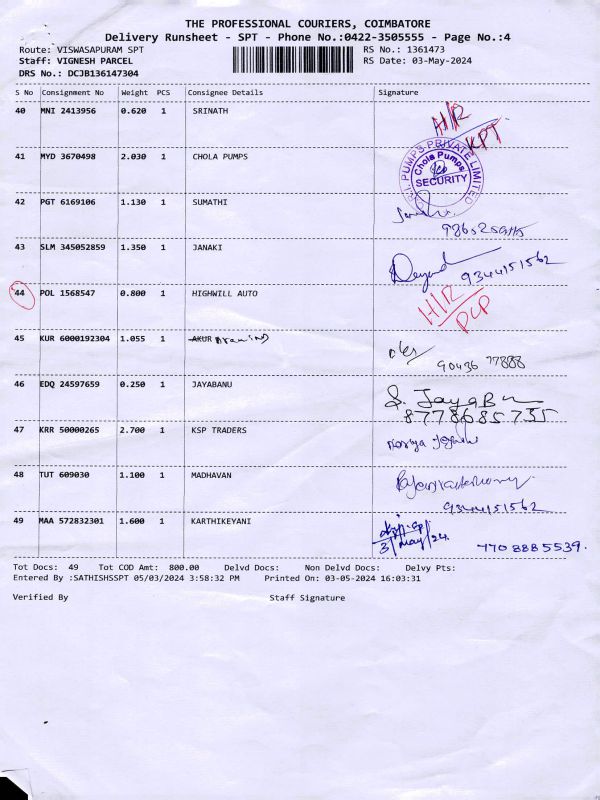 THE PROFESSIONAL COURIERS, COIMBATORE
Delivery Runsheet - SPT - Phone No.:0422-3505555 - Page No.:4
Route: VISWASAPURAM SPT RS No.: 1361473
Staff: VIGNESH PARCEL RS Date: 03-May-2024
DRS No.: DCJB136147304
S No Consignment No Weight PCS Consignee Details Signature
40 MNI 2413956 0.620 1 SRINATH H/R
KPT
41 MYD 3670498 2.030 1 CHOLA PUMPS PUMPS PRIVATE LIMITED Chola Pumps SECURITY
42 PGT 6169106 1.130 1 SUMATHI
43 SLM 345052859 1.350 1 JANAKI 9344151562
44 POL 1568547 0.800 1 HIGHWILL AUTO H/R
PCP
45 KUR 6000192304 1.055 1 AKUR
90436 77888
46 EDQ 24597659 0.250 1 JAYABANU S. JayaBanu
8778685735
47 KRR 50000265 2.700 1 KSP TRADERS
48 TUT 609030 1.100 1 MADHAVAN
9344151562
49 MAA 572832301 1.600 1 KARTHIKEYANI
3/May/24. 7708885539.
Tot Docs: 49 Tot COD Amt: 800.00 Delvd Docs: Non Delvd Docs: Delvy Pts:
Entered By :SATHISHSSPT 05/03/2024 3:58:32 PM Printed On: 03-05-2024 16:03:31
Verified By Staff Signature